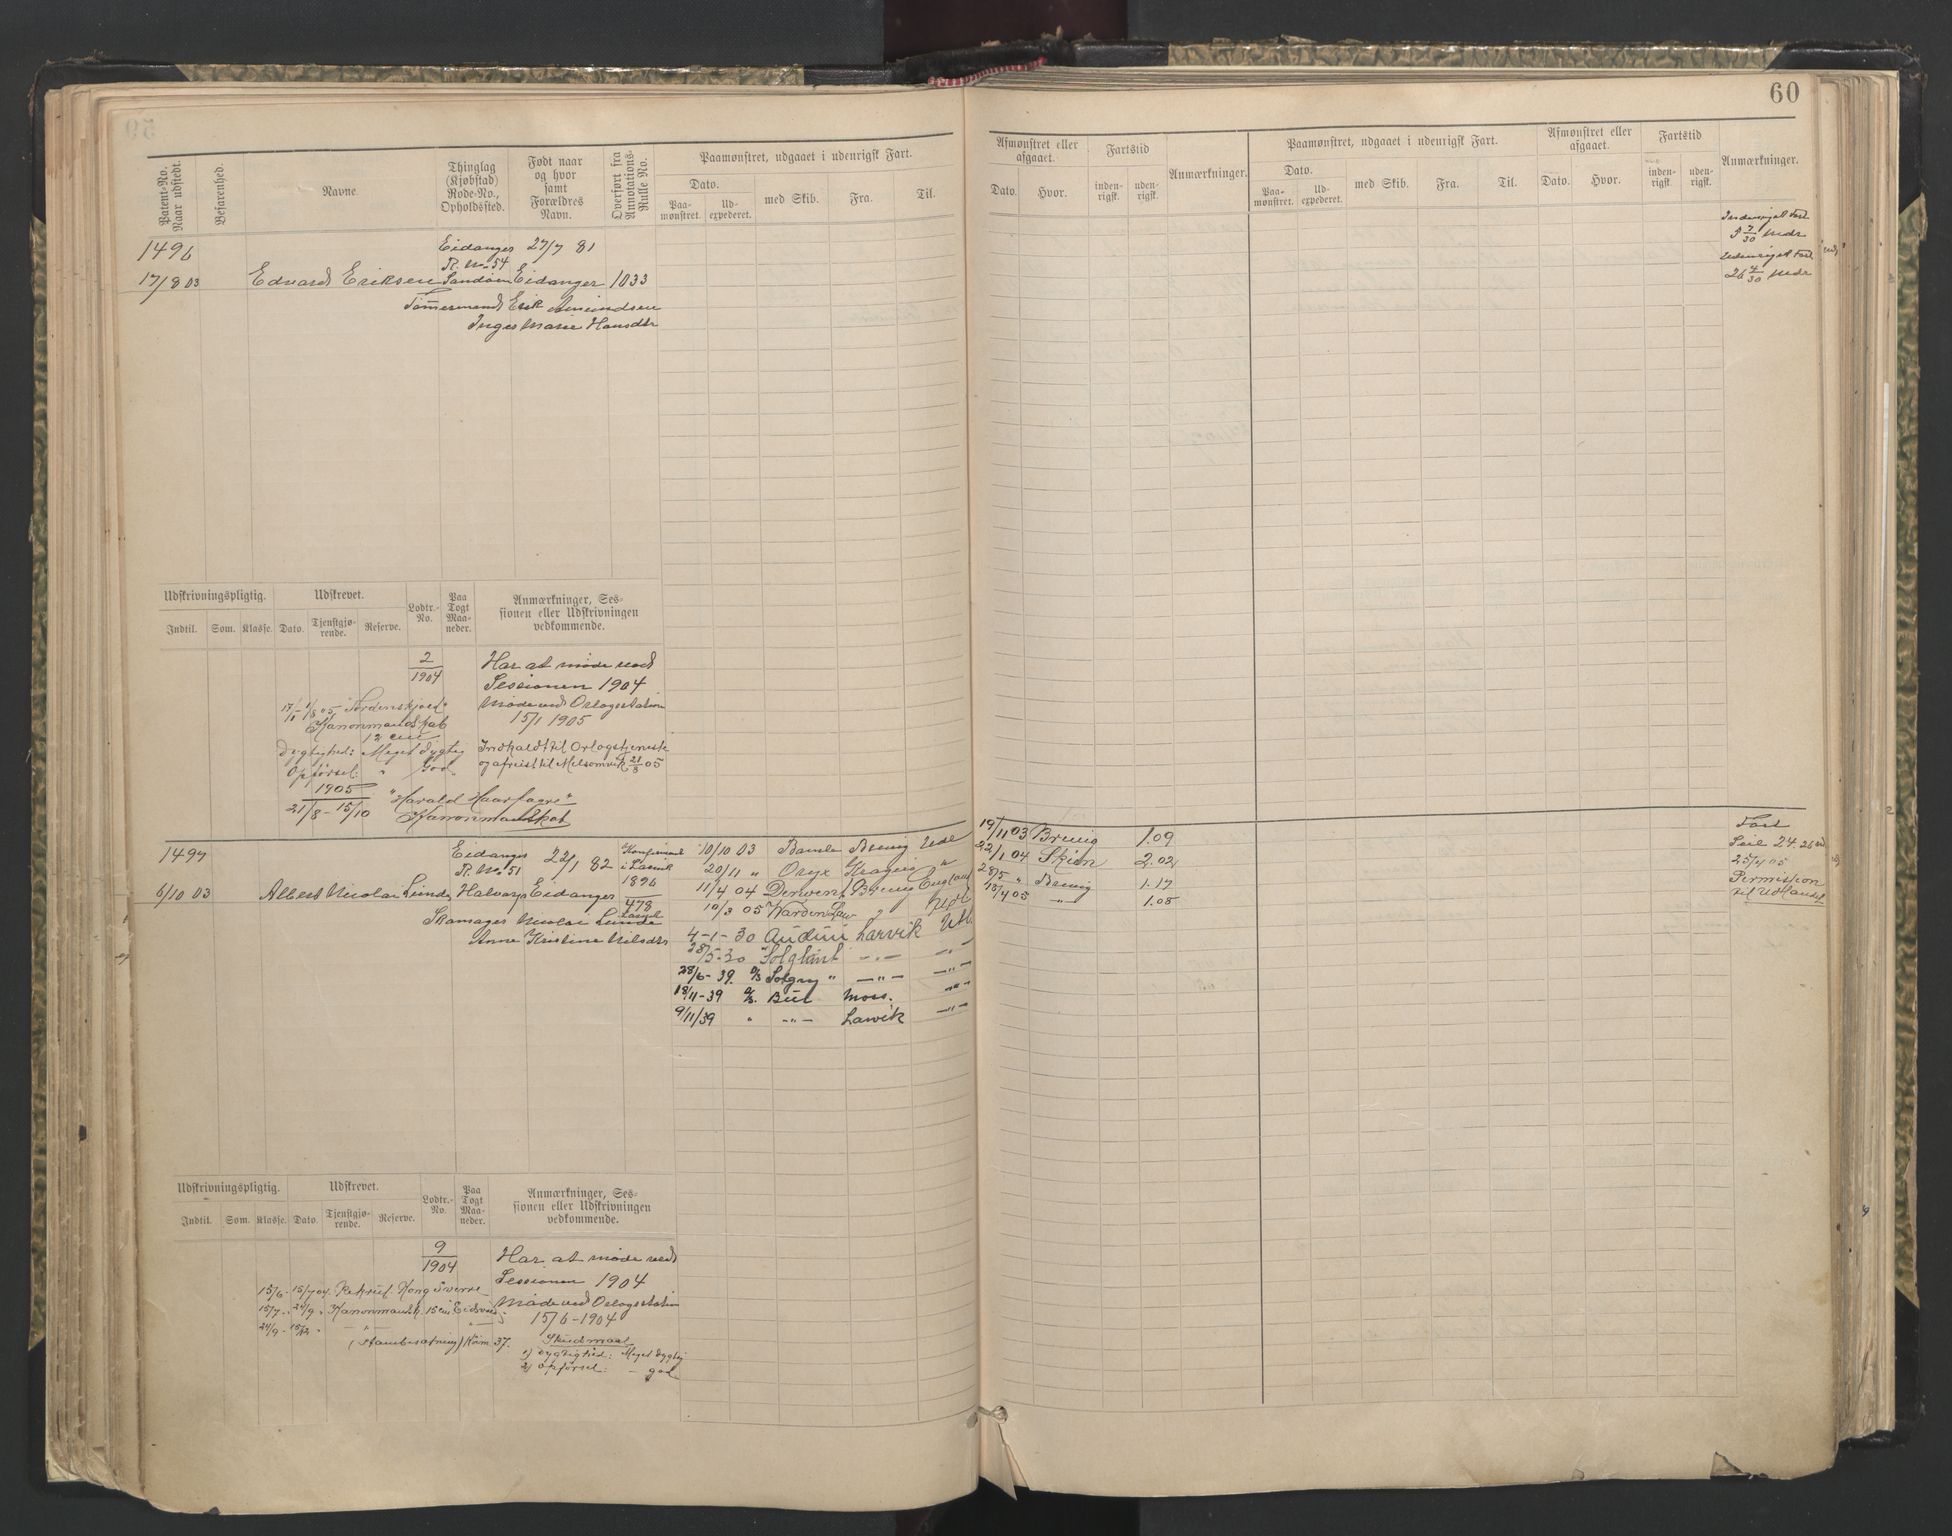 60
Patent-No. Naar udstedt.
Befarenhed.
Navne.
Thinglag (Kjøbstad) Rode-No., Opholdssted.
Født naar og hvor samt Forældres Navn.
Overført fra Annotations-Rulle No.
Paamønstret, udgaaet i udenrigsk Fart.
Dato.
Paa-mønstret.
Ud-expederet.
med Skib.
Fra.
Til.
Afmønstret eller afgaaet.
Dato.
Hvor.
Fartstid
inden-rigsk.
uden-rigsk.
Anmærkninger.
Paamønstret, udgaaet i udenrigsk Fart.
Dato.
Paa-mønstret.
Ud-expederet.
med Skib.
Fra.
Til.
Afmønstret eller afgaaet.
Dato.
Hvor.
Fartstid
inden-rigsk.
uden-rigsk.
Anmærkninger.
1496
Eidanger 27/7 81
R. No. 54
17/8 03 Edvard Eriksen Sandøen Eidanger 1033
Tømmermand Erik Amundsen
Inger Marie Hansdtr
Indenrigsk Fart
5 7/30 Mdr
Udenrigsk Fart
26 4/30 Mdr
Udskrivningspligtig.
Udskrevet.
Lodtr.-No.
Paa Togt Maa-neder.
Anmærkninger, Ses-sionen eller Udskrivningen vedkommende.
Indtil.
Som.
Klasse.
Dato.
Tjenstgjø-rende.
Reserve.
2
1904
Har at møde ved
Sessionen 1904
Møde ved Orlogsstation
15/1 1905
"Tordenskjold"
Kanonmandskab
12 cm
Dygtighed: Meget dygtig
Opførsel: " God
Indkaldt til Orlogstjeneste
og afreist til Melsomvik 21/8 05
1905
21/8 - 15/10 "Harald Haarfagre"
Kanonmandskab
1497
Eidanger 22/1 82
R. No. 51
6/10 03 Albert Nicolai Lunde Halvarp Eidanger
Skomager Nicolai Lunde
Anne Kristine Nilsdtr
Konfirmeret
i Larvik
1896
478
10/10 03 Bamle Brevig Udl
20/11 " Oryx Kragerø "
11/4 04 Derwent Brevig England
10/3 05 Warden Law " Udl
4-1-30 Audun Larvik Udl.
28/5-30 "Solglimt -"- -"-
28/6-39. D/S Solgry " -"- -"-
18/11-39 D/S. Bur Moss. -"-
9/11/39 " -"- Larvik -"-
19/11 03 Brevig 1.09
22/1 04 Skien 2.02
28/5 " Brevig 1.17
18/4 05 -"- 1.08
Fart
Seil 24.26
25/4 05
Permission
til Udlandet
Udskrivningspligtig.
Udskrevet.
Lodtr.-No.
Paa Togt Maa-neder.
Anmærkninger, Ses-sionen eller Udskrivningen vedkommende.
Indtil.
Som.
Klasse.
Dato.
Tjenstgjø-rende.
Reserve.
9
1904
Har at møde ved
Sessionen 1904
Møde ved Orlogsstation
15/6-1904
15/6 - 15/7 04. Rekrut. Kong Sverre
15/7 - 24/9 " Kanonmandsk. 15 cm Eidsvold
24/9 - 15/12 " -"- -"-
(Stambesætning)
Skudsmaal
1) Dygtighed: Meget dygtig
2) Opførsel: - god